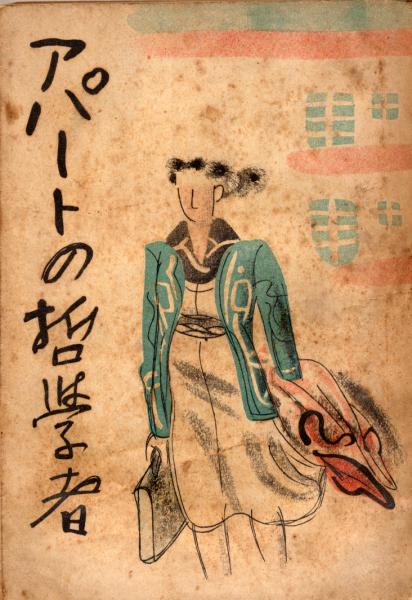 アパートの哲学者